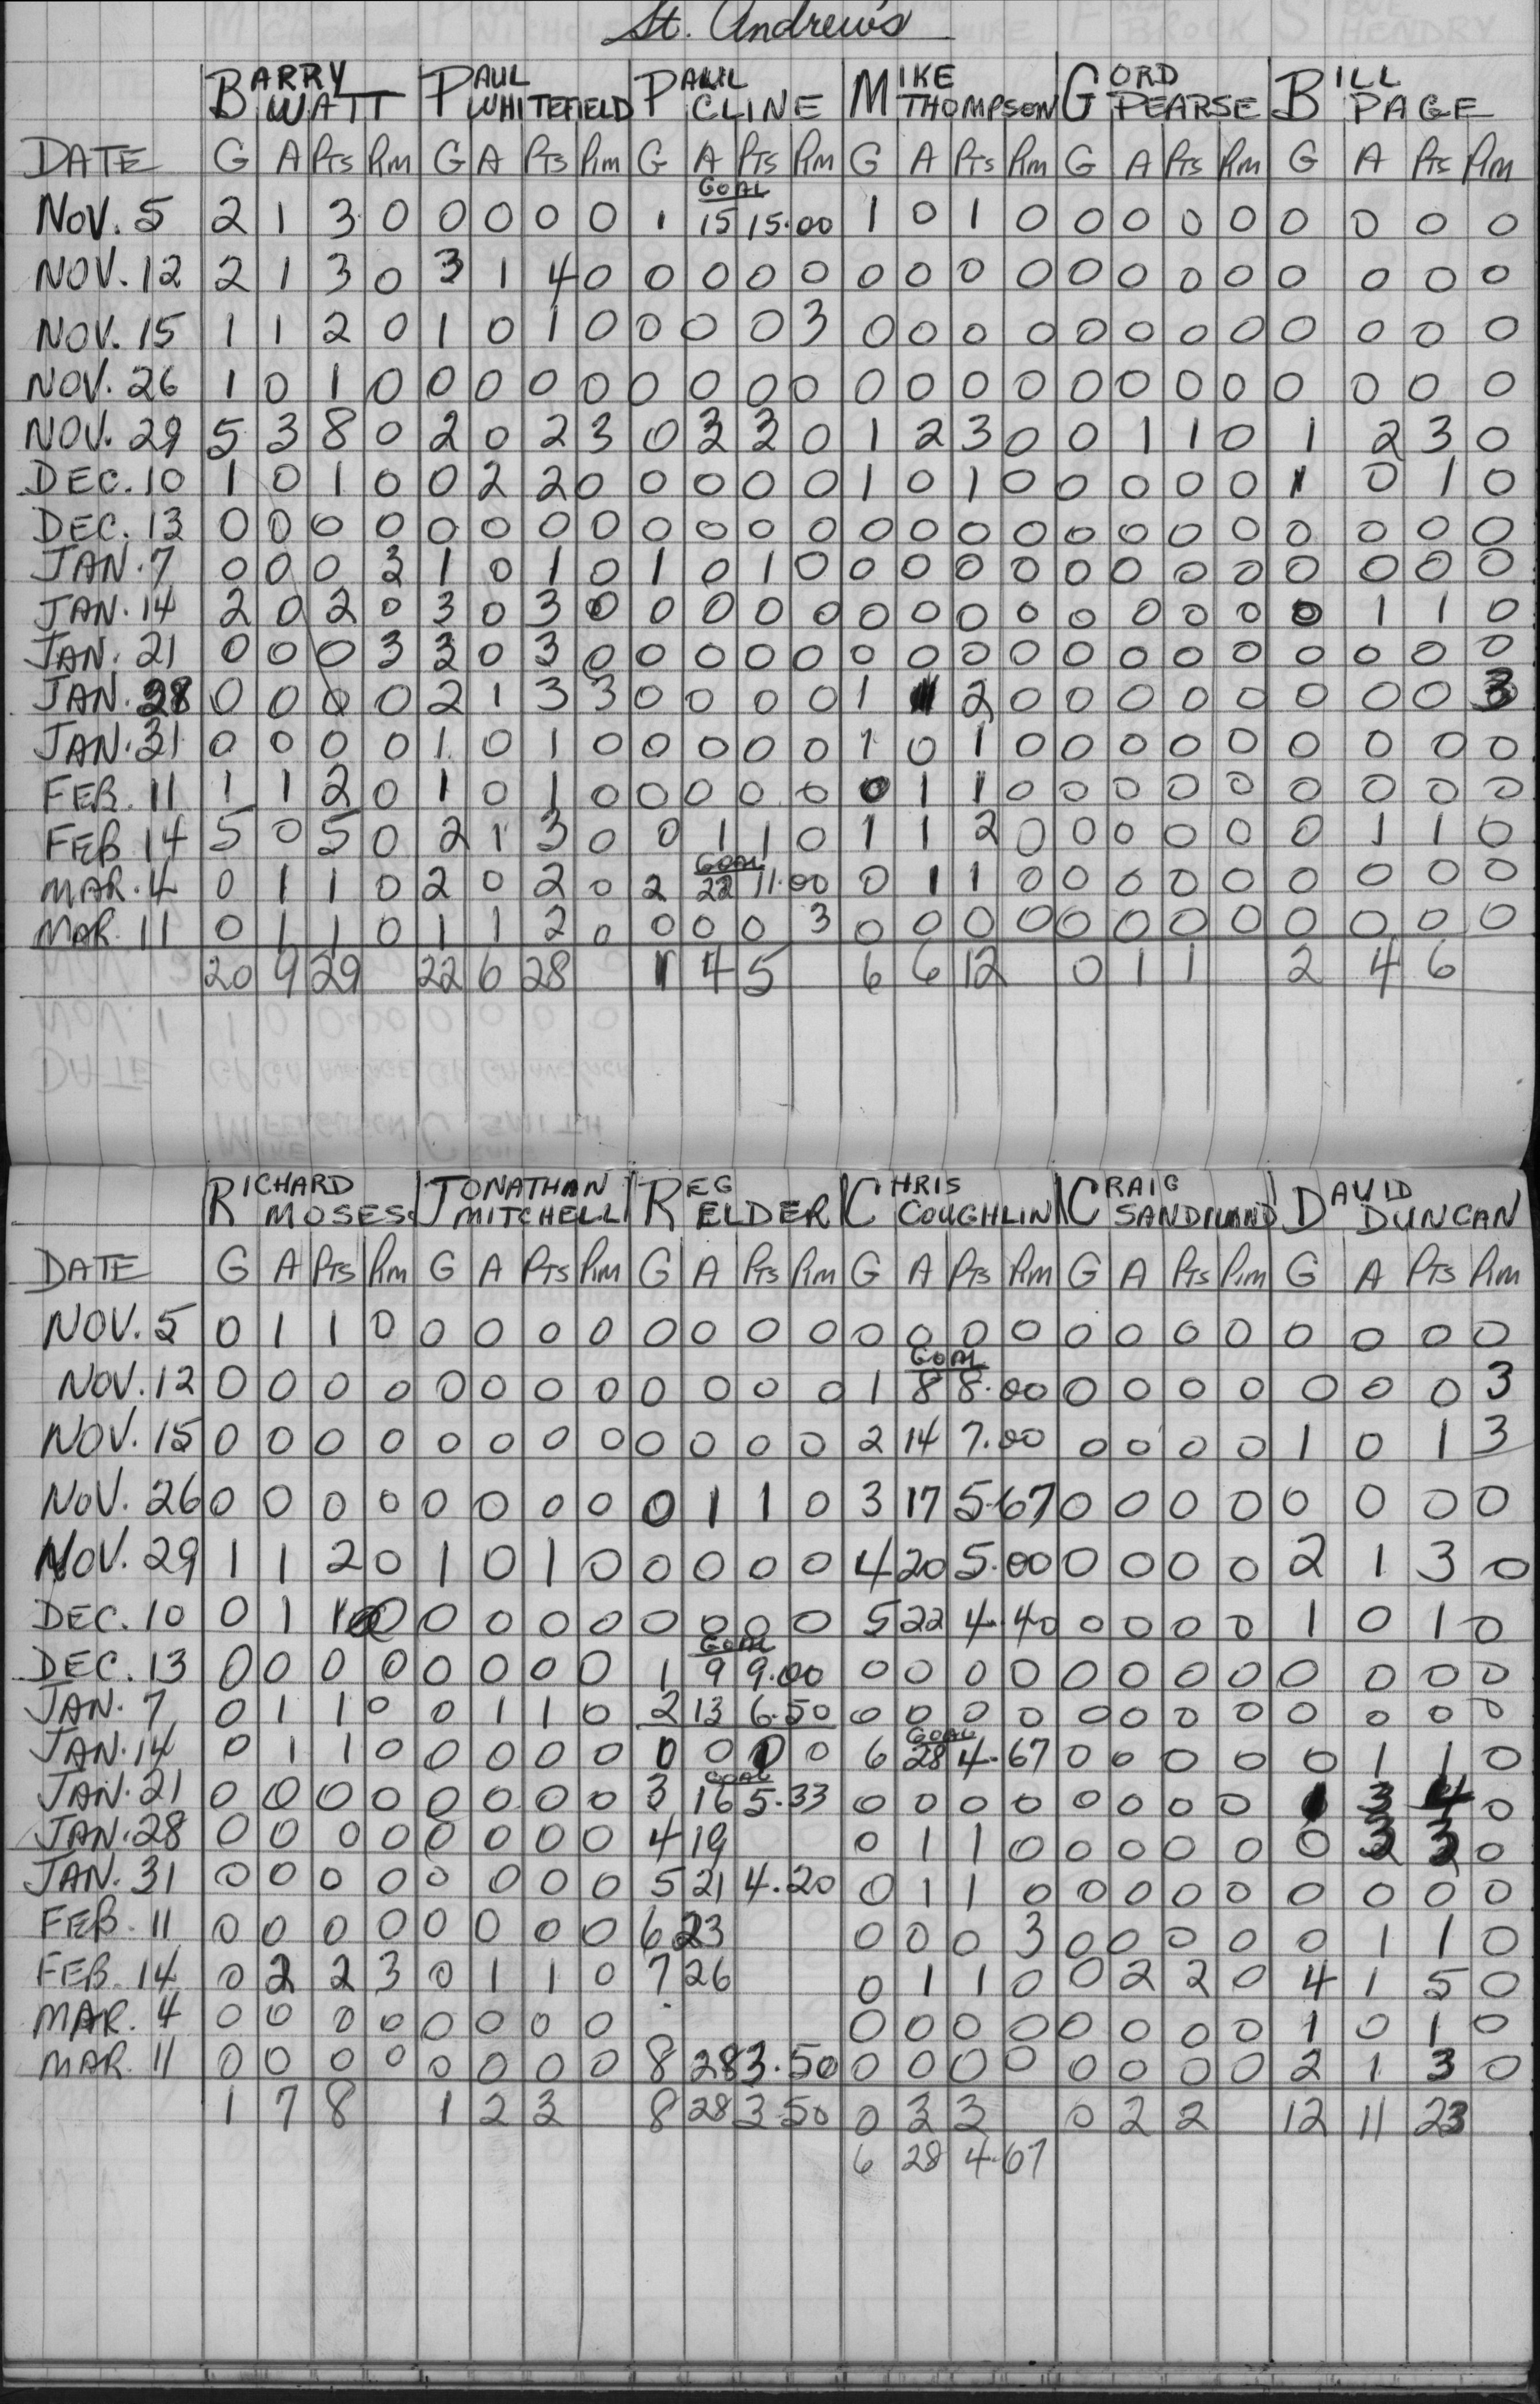 St. Andrew's
BARRY WATT PAUL WHITEFIELD PAUL CLINE MIKE THOMPSON GORD PEARSE BILL PAGE
DATE G A Pts Pim G A Pts Pim G A Pts Pim G A Pts Pim G A Pts Pim G A Pts Pim
GOAL
NOV. 5 2 1 3 0 0 0 0 0 1 15 15.00 1 0 1 0 0 0 0 0 0 0 0 0
NOV. 12 2 1 3 0 3 1 4 0 0 0 0 0 0 0 0 0 0 0 0 0 0 0 0 0
NOV. 15 1 1 2 0 1 0 1 0 0 0 0 3 0 0 0 0 0 0 0 0 0 0 0 0
NOV. 26 1 0 1 0 0 0 0 0 0 0 0 0 0 0 0 0 0 0 0 0 0 0 0 0
NOV. 29 5 3 8 0 2 0 2 3 0 3 3 0 1 2 3 0 0 1 1 0 1 2 3 0
DEC. 10 1 0 1 0 0 2 2 0 0 0 0 0 1 0 1 0 0 0 0 0 1 0 1 0
DEC. 13 0 0 0 0 0 0 0 0 0 0 0 0 0 0 0 0 0 0 0 0 0 0 0 0
JAN. 7 0 0 0 3 1 0 1 0 1 0 1 0 0 0 0 0 0 0 0 0 0 0 0 0
JAN. 14 2 0 2 0 3 0 3 0 0 0 0 0 0 0 0 0 0 0 0 0 0 1 1 0
JAN. 21 0 0 0 3 3 0 3 0 0 0 0 0 0 0 0 0 0 0 0 0 0 0 0 0
JAN. 28 0 0 0 0 2 1 3 3 0 0 0 0 1 1 2 0 0 0 0 0 0 0 0 3
JAN. 31 0 0 0 0 1 0 1 0 0 0 0 0 1 0 1 0 0 0 0 0 0 0 0 0
FEB. 11 1 1 2 0 1 0 1 0 0 0 0 0 0 1 1 0 0 0 0 0 0 0 0 0
FEB 14 5 0 5 0 2 1 3 0 0 1 1 0 1 1 2 0 0 0 0 0 0 1 1 0
GOAL
MAR. 4 0 1 1 0 2 0 2 0 2 22 11.00 0 1 1 0 0 0 0 0 0 0 0 0
MAR. 11 0 1 1 0 1 1 2 0 0 0 0 3 0 0 0 0 0 0 0 0 0 0 0 0
20 9 29 22 6 28 1 4 5 6 6 12 0 1 1 2 4 6
RICHARD MOSES JONATHAN MITCHELL REG ELDER CHRIS COUGHLIN CRAIG DAVID DUNCAN
DATE G A Pts Pim G A Pts Pim G A Pts Pim G A Pts Pim G A Pts Pim G A Pts Pim
NOV. 5 0 1 1 0 0 0 0 0 0 0 0 0 0 0 0 0 0 0 0 0 0 0 0 0
GOAL
NOV. 12 0 0 0 0 0 0 0 0 0 0 0 0 1 8 8.00 0 0 0 0 0 0 0 3
NOV. 15 0 0 0 0 0 0 0 0 0 0 0 0 2 14 7.00 0 0 0 0 1 0 1 3
NOV. 26 0 0 0 0 0 0 0 0 0 1 1 0 3 17 5.67 0 0 0 0 0 0 0 0
NOV. 29 1 1 2 0 1 0 1 0 0 0 0 0 4 20 5.00 0 0 0 0 2 1 3 0
DEC. 10 0 1 1 0 0 0 0 0 0 0 0 0 5 22 4.40 0 0 0 0 1 0 1 0
GOAL
DEC. 13 0 0 0 0 0 0 0 0 1 9 9.00 0 0 0 0 0 0 0 0 0 0 0 0
JAN. 7 0 1 1 0 0 1 1 0 2 13 6.50 0 0 0 0 0 0 0 0 0 0 0 0
GOAL
JAN. 14 0 1 1 0 0 0 0 0 0 0 0 0 6 28 4.67 0 0 0 0 0 1 1 0
GOAL
JAN. 21 0 0 0 0 0 0 0 0 3 16 5.33 0 0 0 0 0 0 0 0 1 3 4 0
JAN. 28 0 0 0 0 0 0 0 0 4 19 0 1 1 0 0 0 0 0 0 3 3 0
JAN. 31 0 0 0 0 0 0 0 0 5 21 4.20 0 1 1 0 0 0 0 0 0 0 0 0
FEB. 11 0 0 0 0 0 0 0 0 6 23 0 0 0 3 0 0 0 0 0 1 1 0
FEB. 14 0 2 2 3 0 1 1 0 7 26 0 1 1 0 0 2 2 0 4 1 5 0
MAR. 4 0 0 0 0 0 0 0 0 0 0 0 0 0 0 0 0 1 0 1 0
MAR. 11 0 0 0 0 0 0 0 0 8 28 3.50 0 0 0 0 0 0 0 0 2 1 3 0
1 7 8 1 2 3 8 28 3.50 0 3 3 0 2 2 12 11 23
6 28 4.67